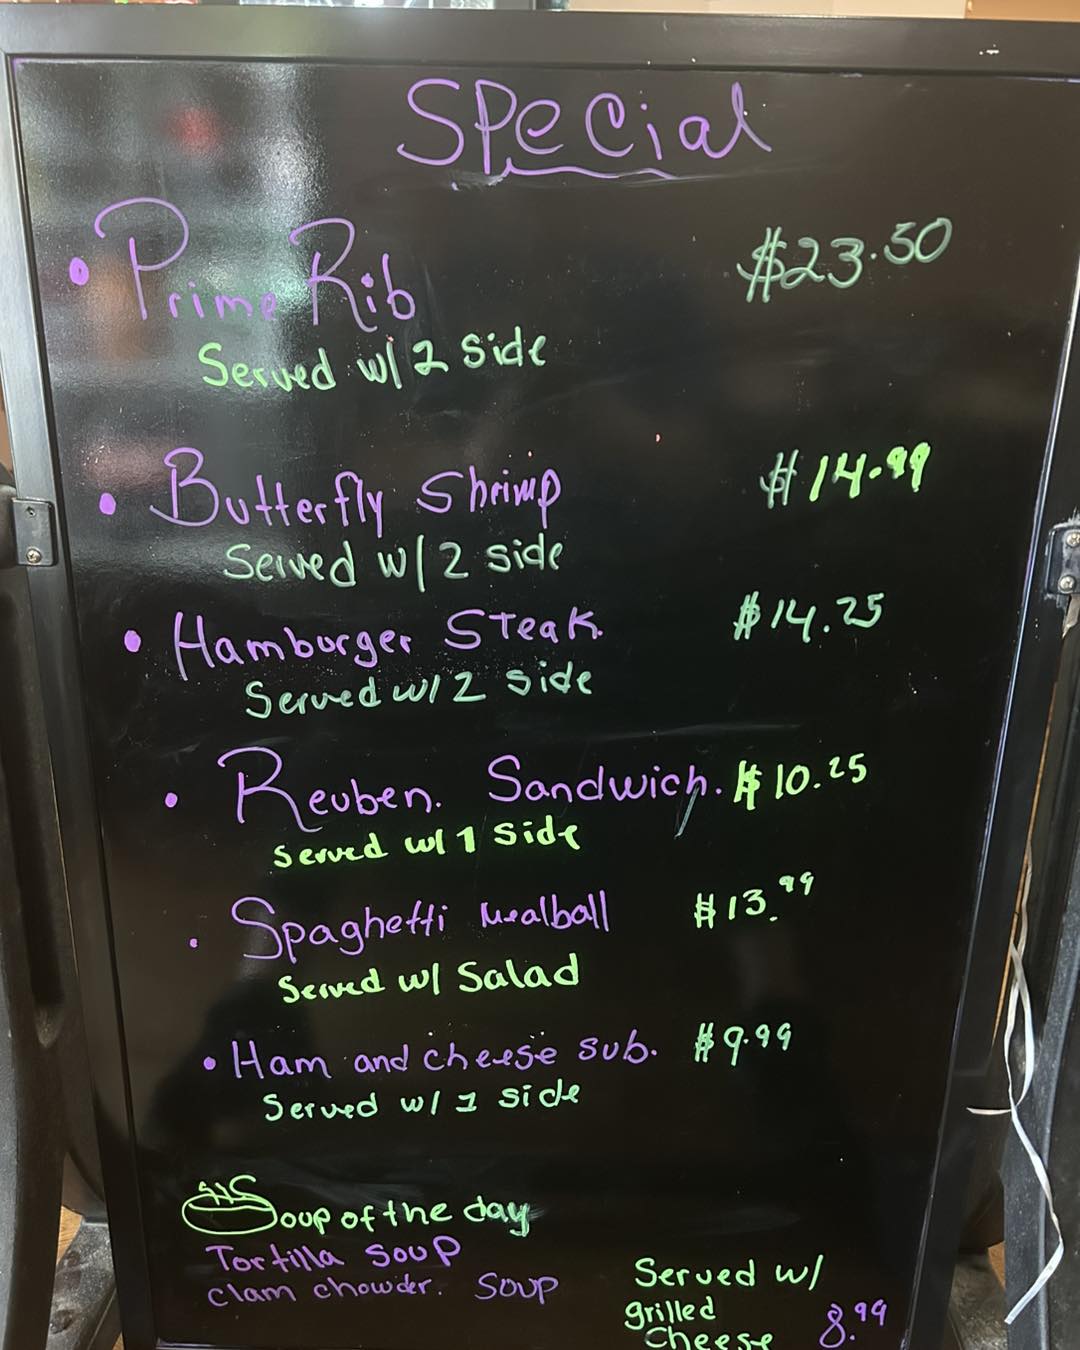 Special
• Prime Rib $23.50
Served w/ 2 side
• Butterfly Shrimp $14.99
Served w/ 2 side
• Hamburger Steak. $14.25
Served w/ 2 side
• Reuben. Sandwich. $10.25
Served w/ 1 side
• Spaghetti Mealball $13.99
Served w/ Salad
• Ham and cheese sub. $9.99
Served w/ 1 side
Soup of the day
Tortilla Soup
clam chowder. Soup
Served w/
grilled
Cheese 8.99